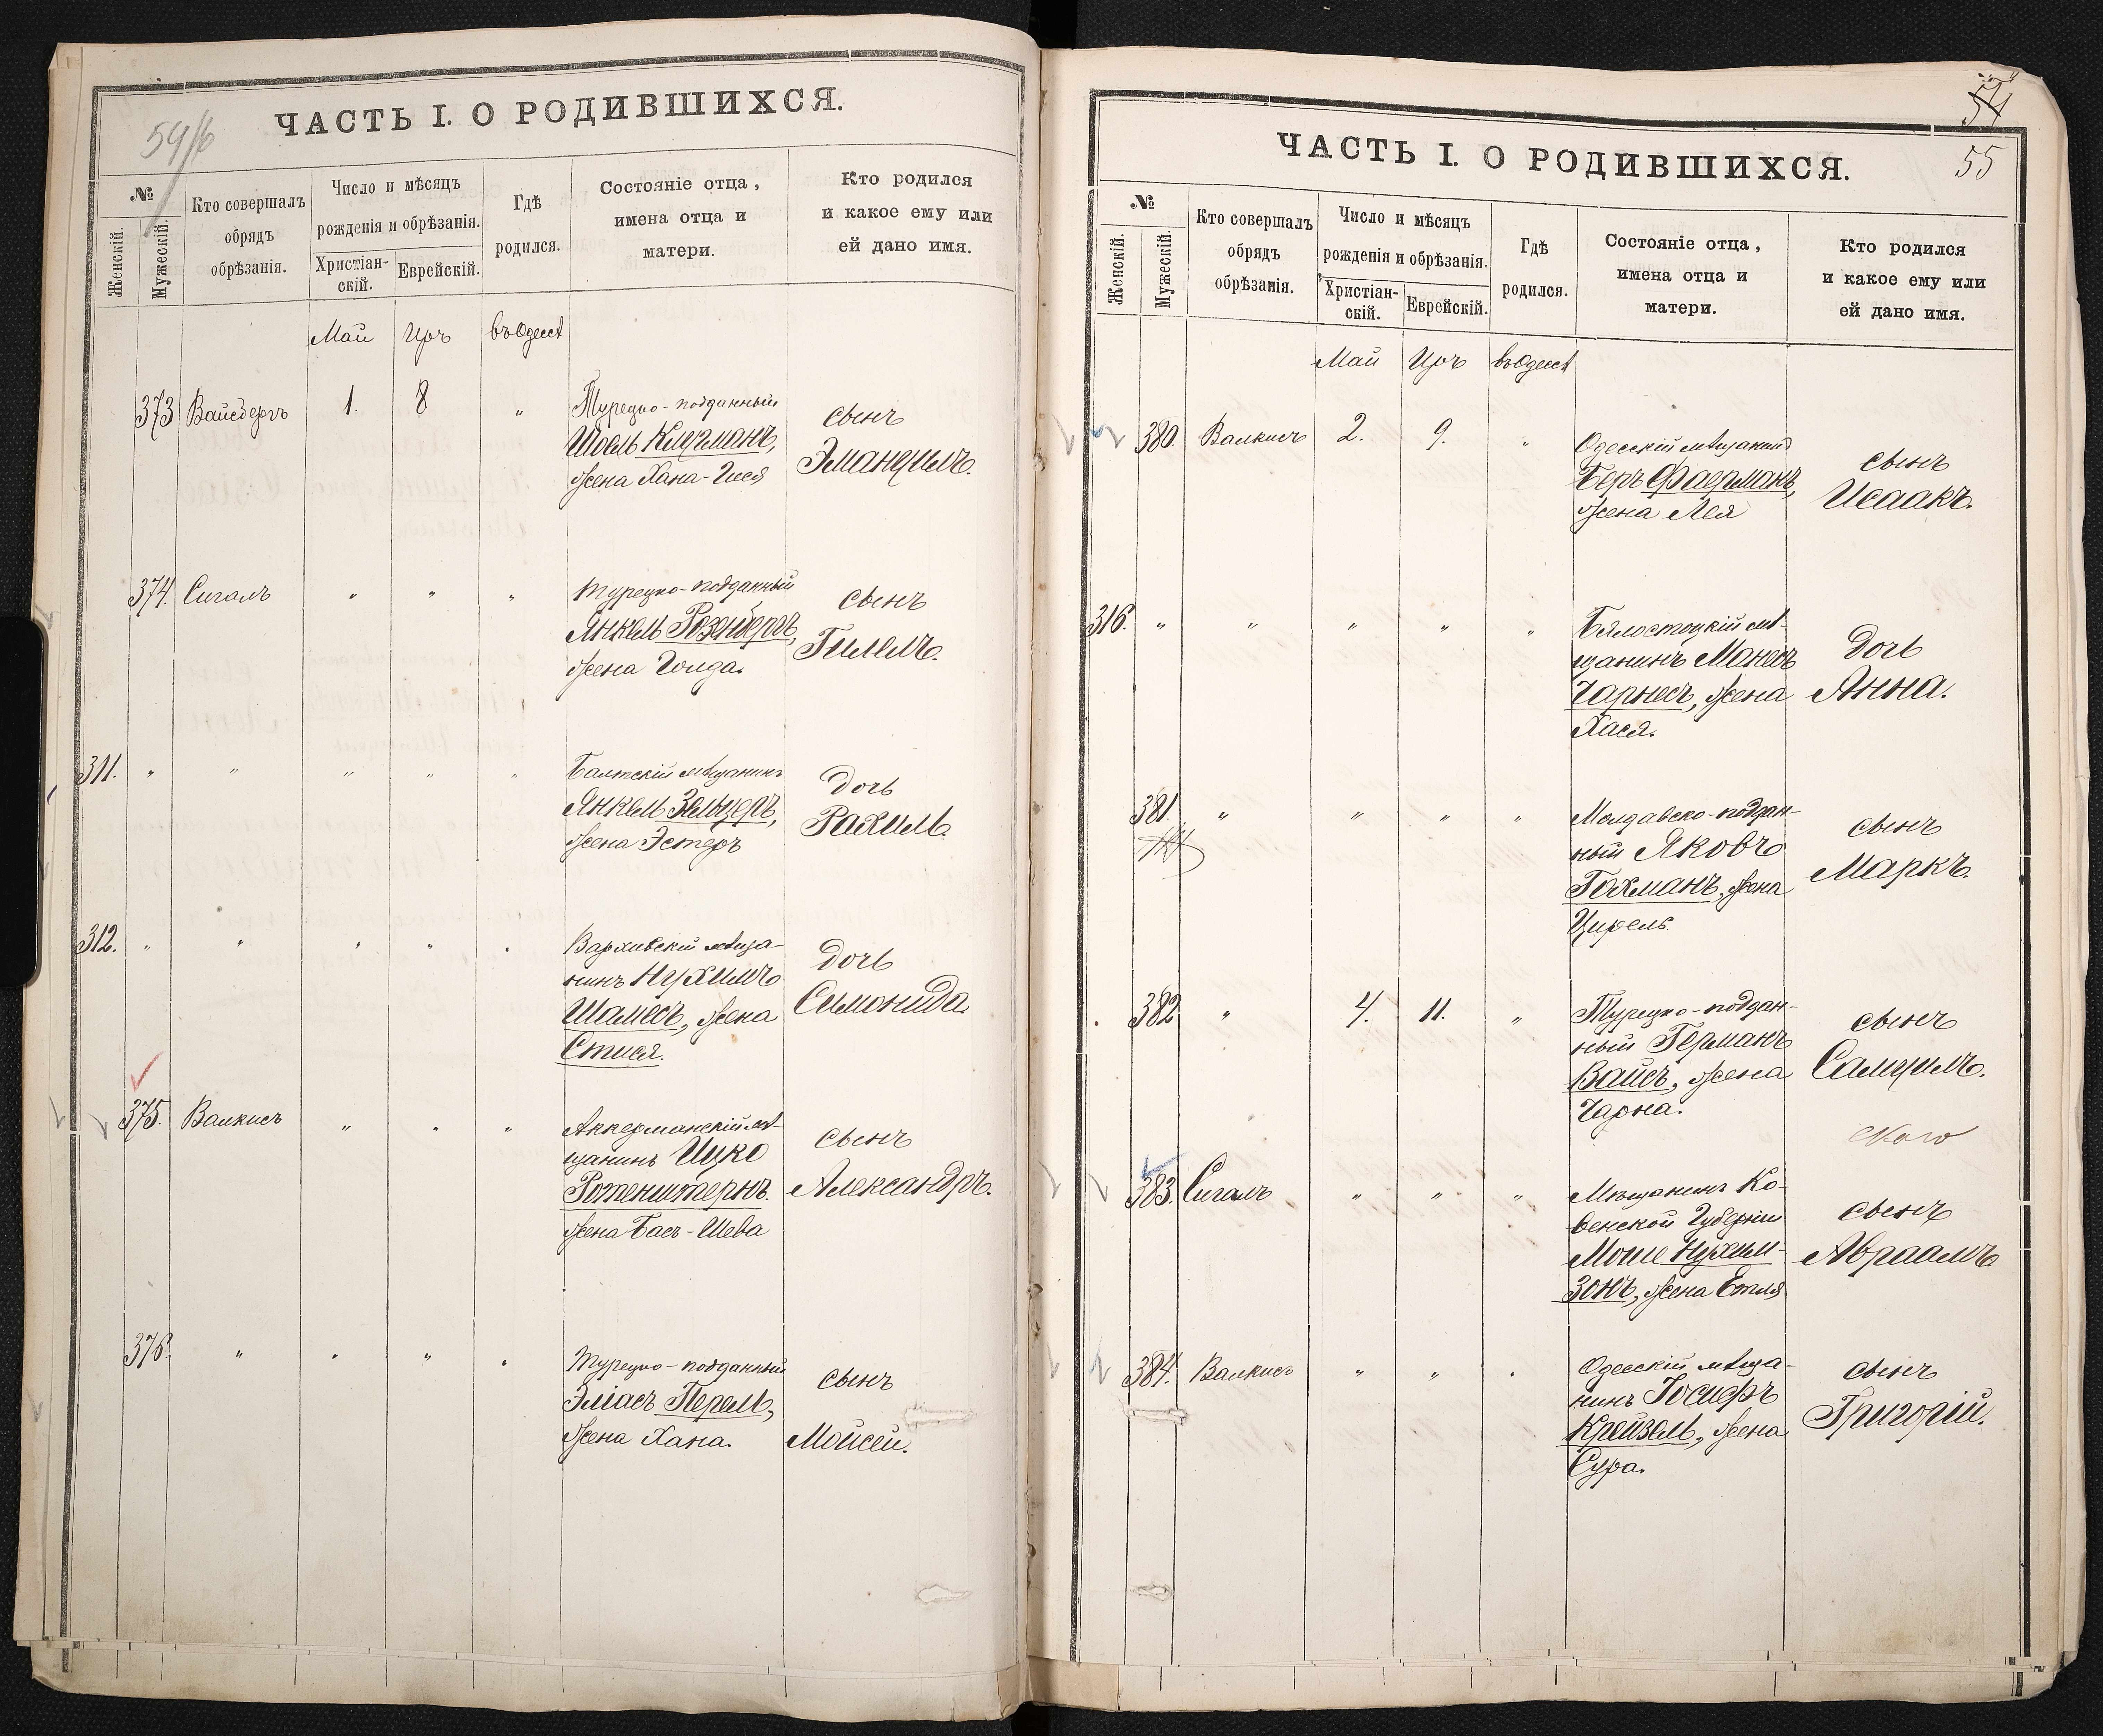 59/6
ЧАСТЬ I. О РОДИВШИХСЯ.
№
Женскій.
Мужескій.
Кто совершалъ
обрядъ
обрѣзанія.
Число и мѣсяцъ
рожденія и обрѣзанія.
Христіан-
скій.
Еврейскій.
Гдѣ
родился.
Состояніе отца,
имена отца и
матери.
Кто родился
и какое ему или
ей дано имя.
Май Іяръ въ Одессѣ
373 Вайсбергъ 1. 8 " Турецко-подданный
Шоель Клугманъ,
жена Хана-Гися
сынъ
Эмануилъ.
374. Сигалъ " " " Турецко-подданный
Янкель Розенбергъ,
жена Голда.
сынъ
Гилелъ.
311. " " " " " Балтскій мѣщанинъ
Янкель Зельцеръ,
жена Эстеръ
дочь
Рахиль.
312. " " " " " мѣща-
нинъ Нухимъ
Шамесъ, жена
дочь
Симонида.
375. Валкисъ " " " Аккерманскій мѣ-
щанинъ Ицко
Ротенштернъ.
жена Бася-Шева
сынъ
Александръ.
376. " " " " Турецко-подданный
Эліасъ Перель,
жена Хана.
сынъ
Мойсей.
54
55
ЧАСТЬ I. О РОДИВШИХСЯ.
№
Женскій.
Мужескій.
Кто совершалъ
обрядъ
обрѣзанія.
Число и мѣсяцъ
рожденія и обрѣзанія.
Христіан-
скій.
Еврейскій.
Гдѣ
родился.
Состояніе отца,
имена отца и
матери.
Кто родился
и какое ему или
ей дано имя.
Май Іяръ въ Одессѣ
380. Валкисъ 2. 9. " Одесскій мѣщанинъ
Беръ Фаерманъ,
жена Лея
сынъ
Исаакъ.
316. " " " " " Бялостоцкій мѣ-
щанинъ Манесъ
Чарнесъ, жена
Хася.
дочь
Анна.
381. " " " " Молдавско-поддан-
ный Яковъ
Гохманъ, жена
Цирель.
сынъ
Маркъ.
382 " 4. 11. " Турецко-поддан-
ный Германъ
Вайсъ, жена
Чарна.
сынъ
Самуилъ.
383. Сигалъ " " " Мѣщанинъ Ко-
венской Губерніи
Моше Нухим-
зонъ, жена Етля
сынъ
Авраамъ
384. Валкисъ " " " Одесскій мѣща-
нинъ Іосифъ
Крейзель, жена
Сура.
сынъ
Григорій.